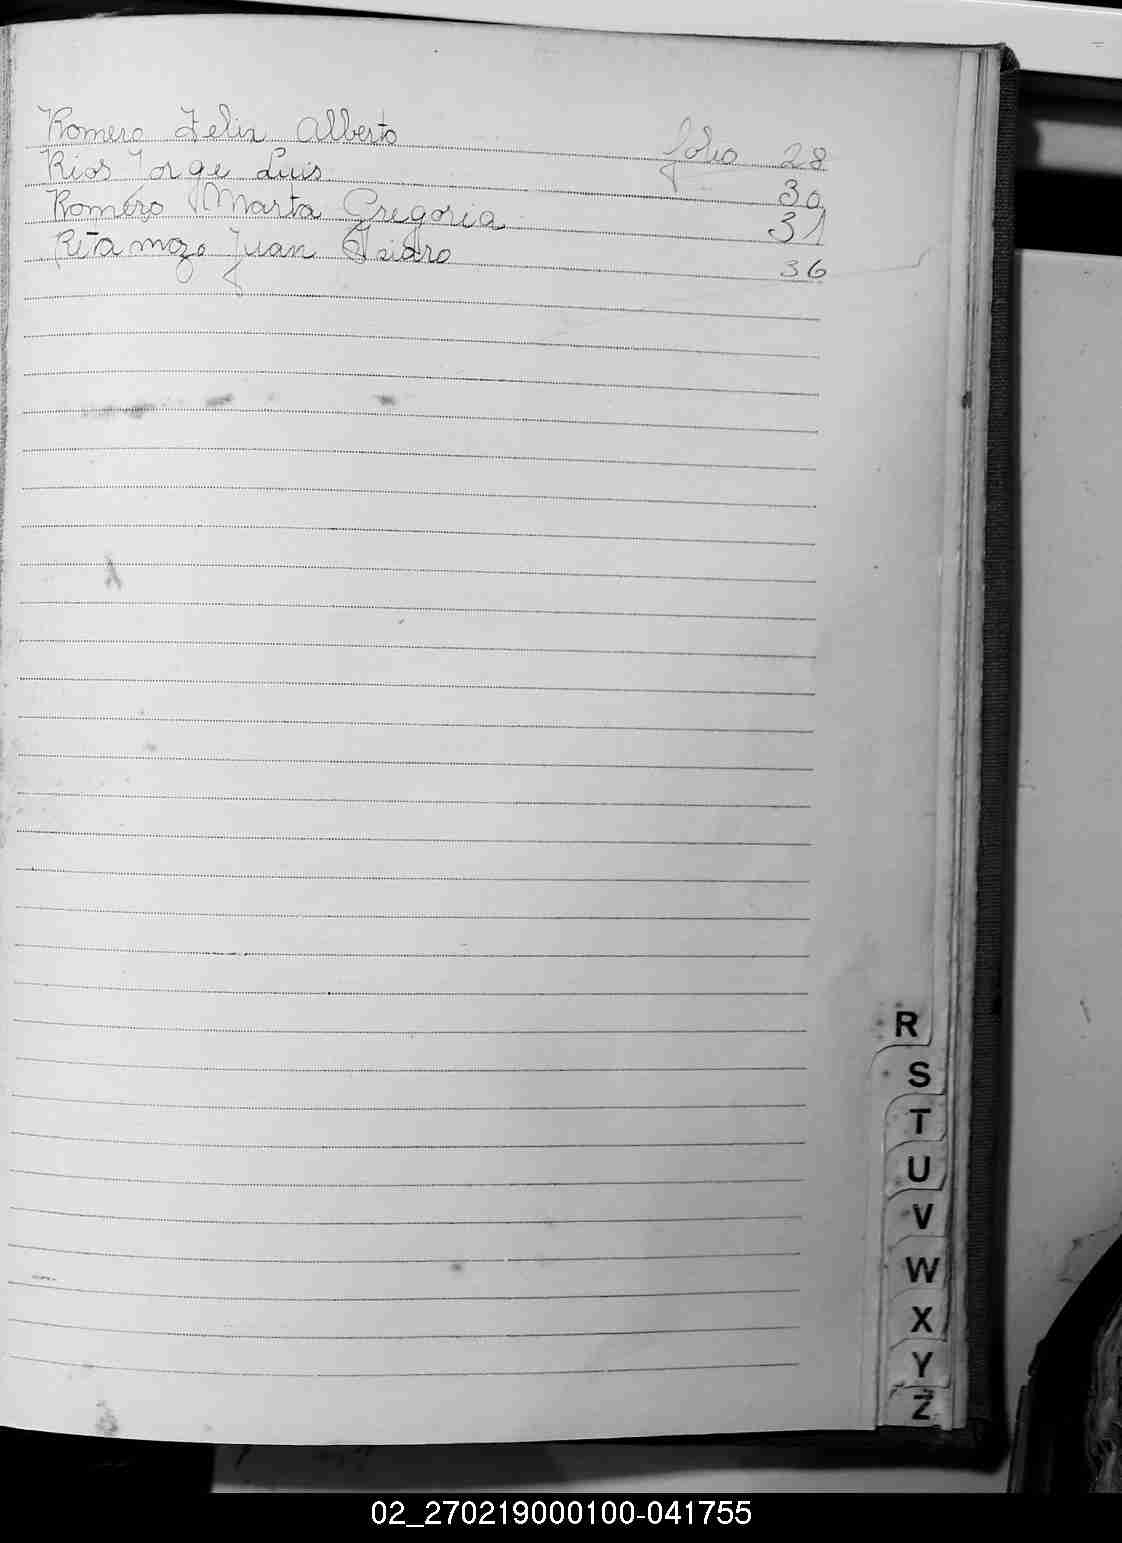 Romero Felix Alberto folio 28
Rios Jorge Luis 30
Romero Marta Gregoria 31
Retamozo Juan Isidro 36
R
S
T
U
V
W
X
Y
Z
02_270219000100-041755